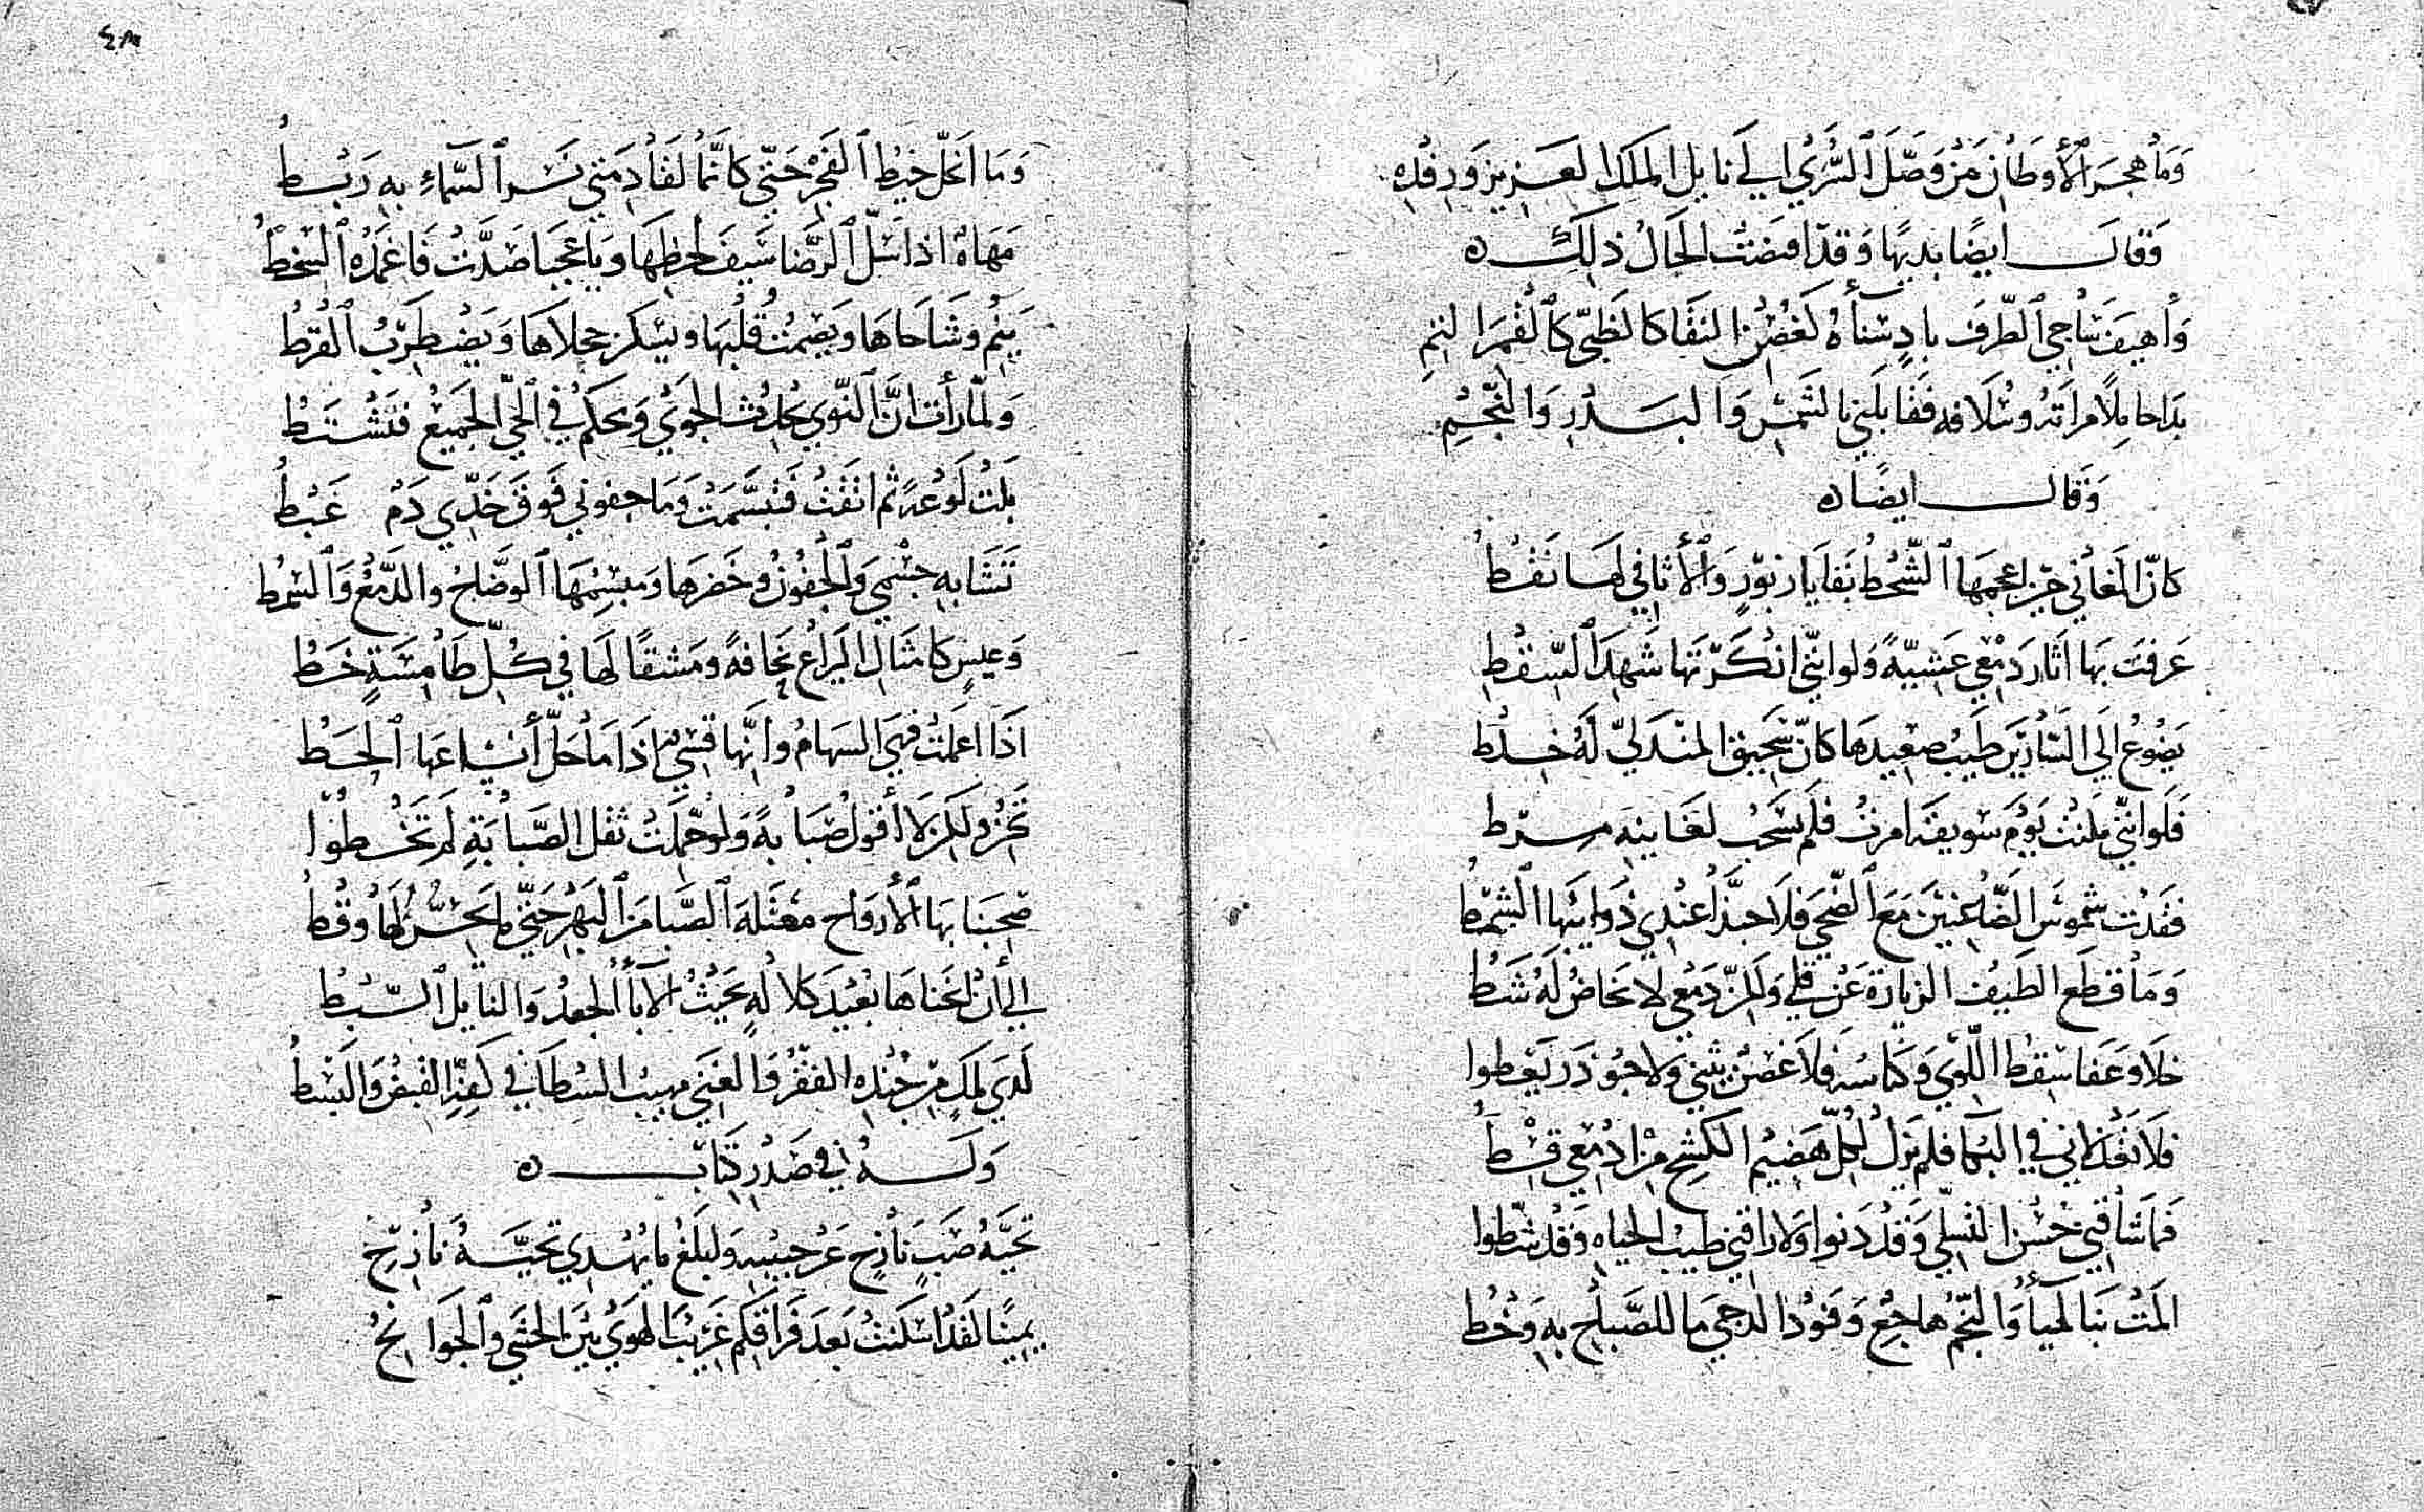 وَمَا هَجَرَ الأَوطَانِ مَنْ وَصَّلَ السُّرى إلى نايل الملك العَزيز وَرِفْدِهِ
وَقالَ ايضًا بديهًا وَقد اقتضت الحَالُ ذلك ه
وَأهيف سَاجي الطّرف بادٍ سَناهُ كَغُصْن النقَا كالظبي كَالقمَر التمِ
بَدَا حامِلًا مرآتَهُ وسُلافه فَقابلني بالشّمسِ وَالبَدْرِ وَالنّجمِ
وَقالَ ايضًا ه
كانّ المغَاني حين اعجمَهَا الشّحْطُ بَقايا زبورٍ وَالأثافي لهَا نَقْطُ
عَرفتُ بهَا آثار دَمْعي عَشيّةً وَلو انني انكَرتهَا شَهِدَ السّقطُ
يَضُوعُ الَى السّارينَ طيبُ صَعيدهَا كانّ سَحيقَ المندَليّ لَهُ خلْطُ
فَلو انني ملكتُ يَوْمَ سُويقَة امرتُ فلم يُسحَبْ لغَانيَه مرط
فقدْتُ شموسَ الضّاعنينَ مَعَ الضّحى فلا حبذا عندي ذوايبُها الشّمطُ
وَمَا قطعَ الطَيفُ الزيارَة عَن قلي وَلكنّ دَمعي لا يخَاضُ لَهُ شَطُ
خلَا وَعَفا سقطُ اللّوى وَكناسُهُ فلاَ غصنٌ يثني ولا جؤذرٌ يَعْطوا
فلَا تعْذلاني في البكا فلم يَزلْ لكلّ هَضيم الكشحِ من ادْمُعي قسْطُ
فمَا شاقني حُسْن التسلّي وَقد دَنوا وَلا راقني طيبُ الحيَاه وَقد شَطّوا
المّتْ بنَا لميَاءُ وَالنّجْمُ هاجعٌ وَفَوْدُ الدجى مَا للصّباحِ بهِ وَخْطُ
وَمَا انحلّ خيْطُ الفَجْر حَتّى كانّما لقَادِمَتي نَسْر السّماءِ بهِ رَبْطُ
مَهَاةٌ اذا سَلّ الرّضَا سَيفَ لحظهَا وَيا عجبا صَدّتْ فَاغمدَهُ السّخطُ
يَنِمُّ وشَاحاهَا وَيَصْمتُ قُلْبُهَا ويَسْكن حجلاهَا وَيَضْطَربُ القُرطُ
وَلمّا رَأت انّ النّوى يحدثُ الجوَى وَيحكمُ في الحَيّ الجَميع فتَشْتَطُ
بكتْ لَوعةً ثم انثنَتْ فتَبسَّمَتْ وَمَا جفوني فَوقَ خَدّي دَمٌ عَبْطُ
تَشَابَه جسْمي وَالجفونُ وخَصرهَا وَمبسمُهَا الوَضَّاحُ والدَّمْعُ وَالسّمْطُ
وَعيسٍ كامثَال اليَراع نحافةً ومَشقًا لهَا في كلّ طَامسَةٍ خَطُ
اذَا اعملَتْ فهيَ السّهامُ وانّها قسيٌّ اذَا مَا حَلّ أنسَاعَهَا الحَطُ
تَخرُّ ولكن لا أقولُ صَبَابةً وَلو حُمّلَتْ ثقل الصّبابَةِ لم تَخْطُوا
صَحبنَا بهَا الأَرْوَاح معتلةَ الصَّبا منَ البهْر حَتّى ما يُحسُّ لهَا وَقْطُ
إلى أن أنخناهَا بعيْدَ كلالهِ بحَيْثُ الإباءُ الجعدُ وَالنايل السّبْطُ
لَدَى ملكٍ من جُنْدِه الفقْرُ وَالغنَى مهيب السُطا في كفّهِ القَبضُ وَالبَسْطُ
وَلَهُ في صَدْرِ كتَابٍ ه
تحيَّةُ صَبٍّ نازحٍ عَن حبيبهِ وَابلغُ ما يُهْدى تحيَّةُ نازحِ
يمينًا لقد اسكَنتُ بَعدَ فرَاقكم غَريبَ الهَوى بَيْنَ الحشَى وَالجوَانحِ